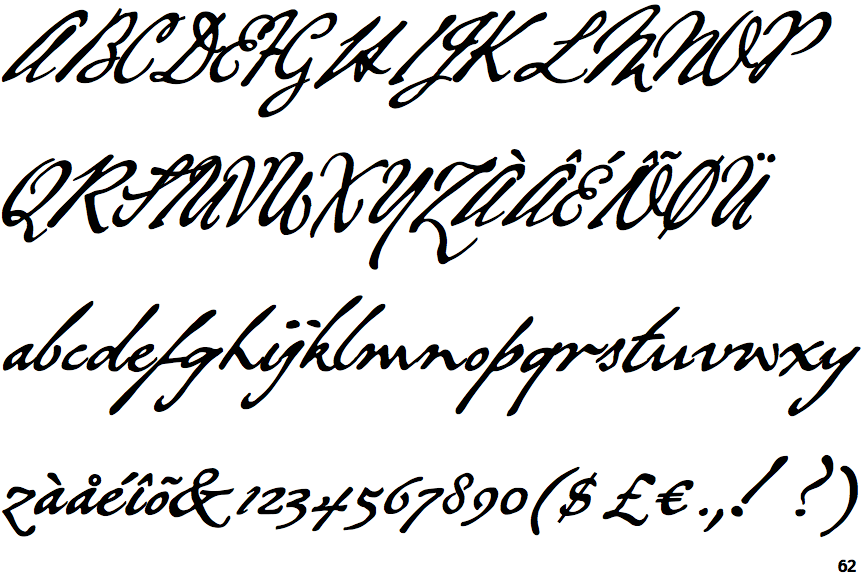 ABCDEFGHIJKLMNOP
QRSTUVWXYZÀÂÉÍÕØÜ
abcdefghijklmnopqrstuvwxy
zàåéîõ&1234567890($£€.,!?)
62